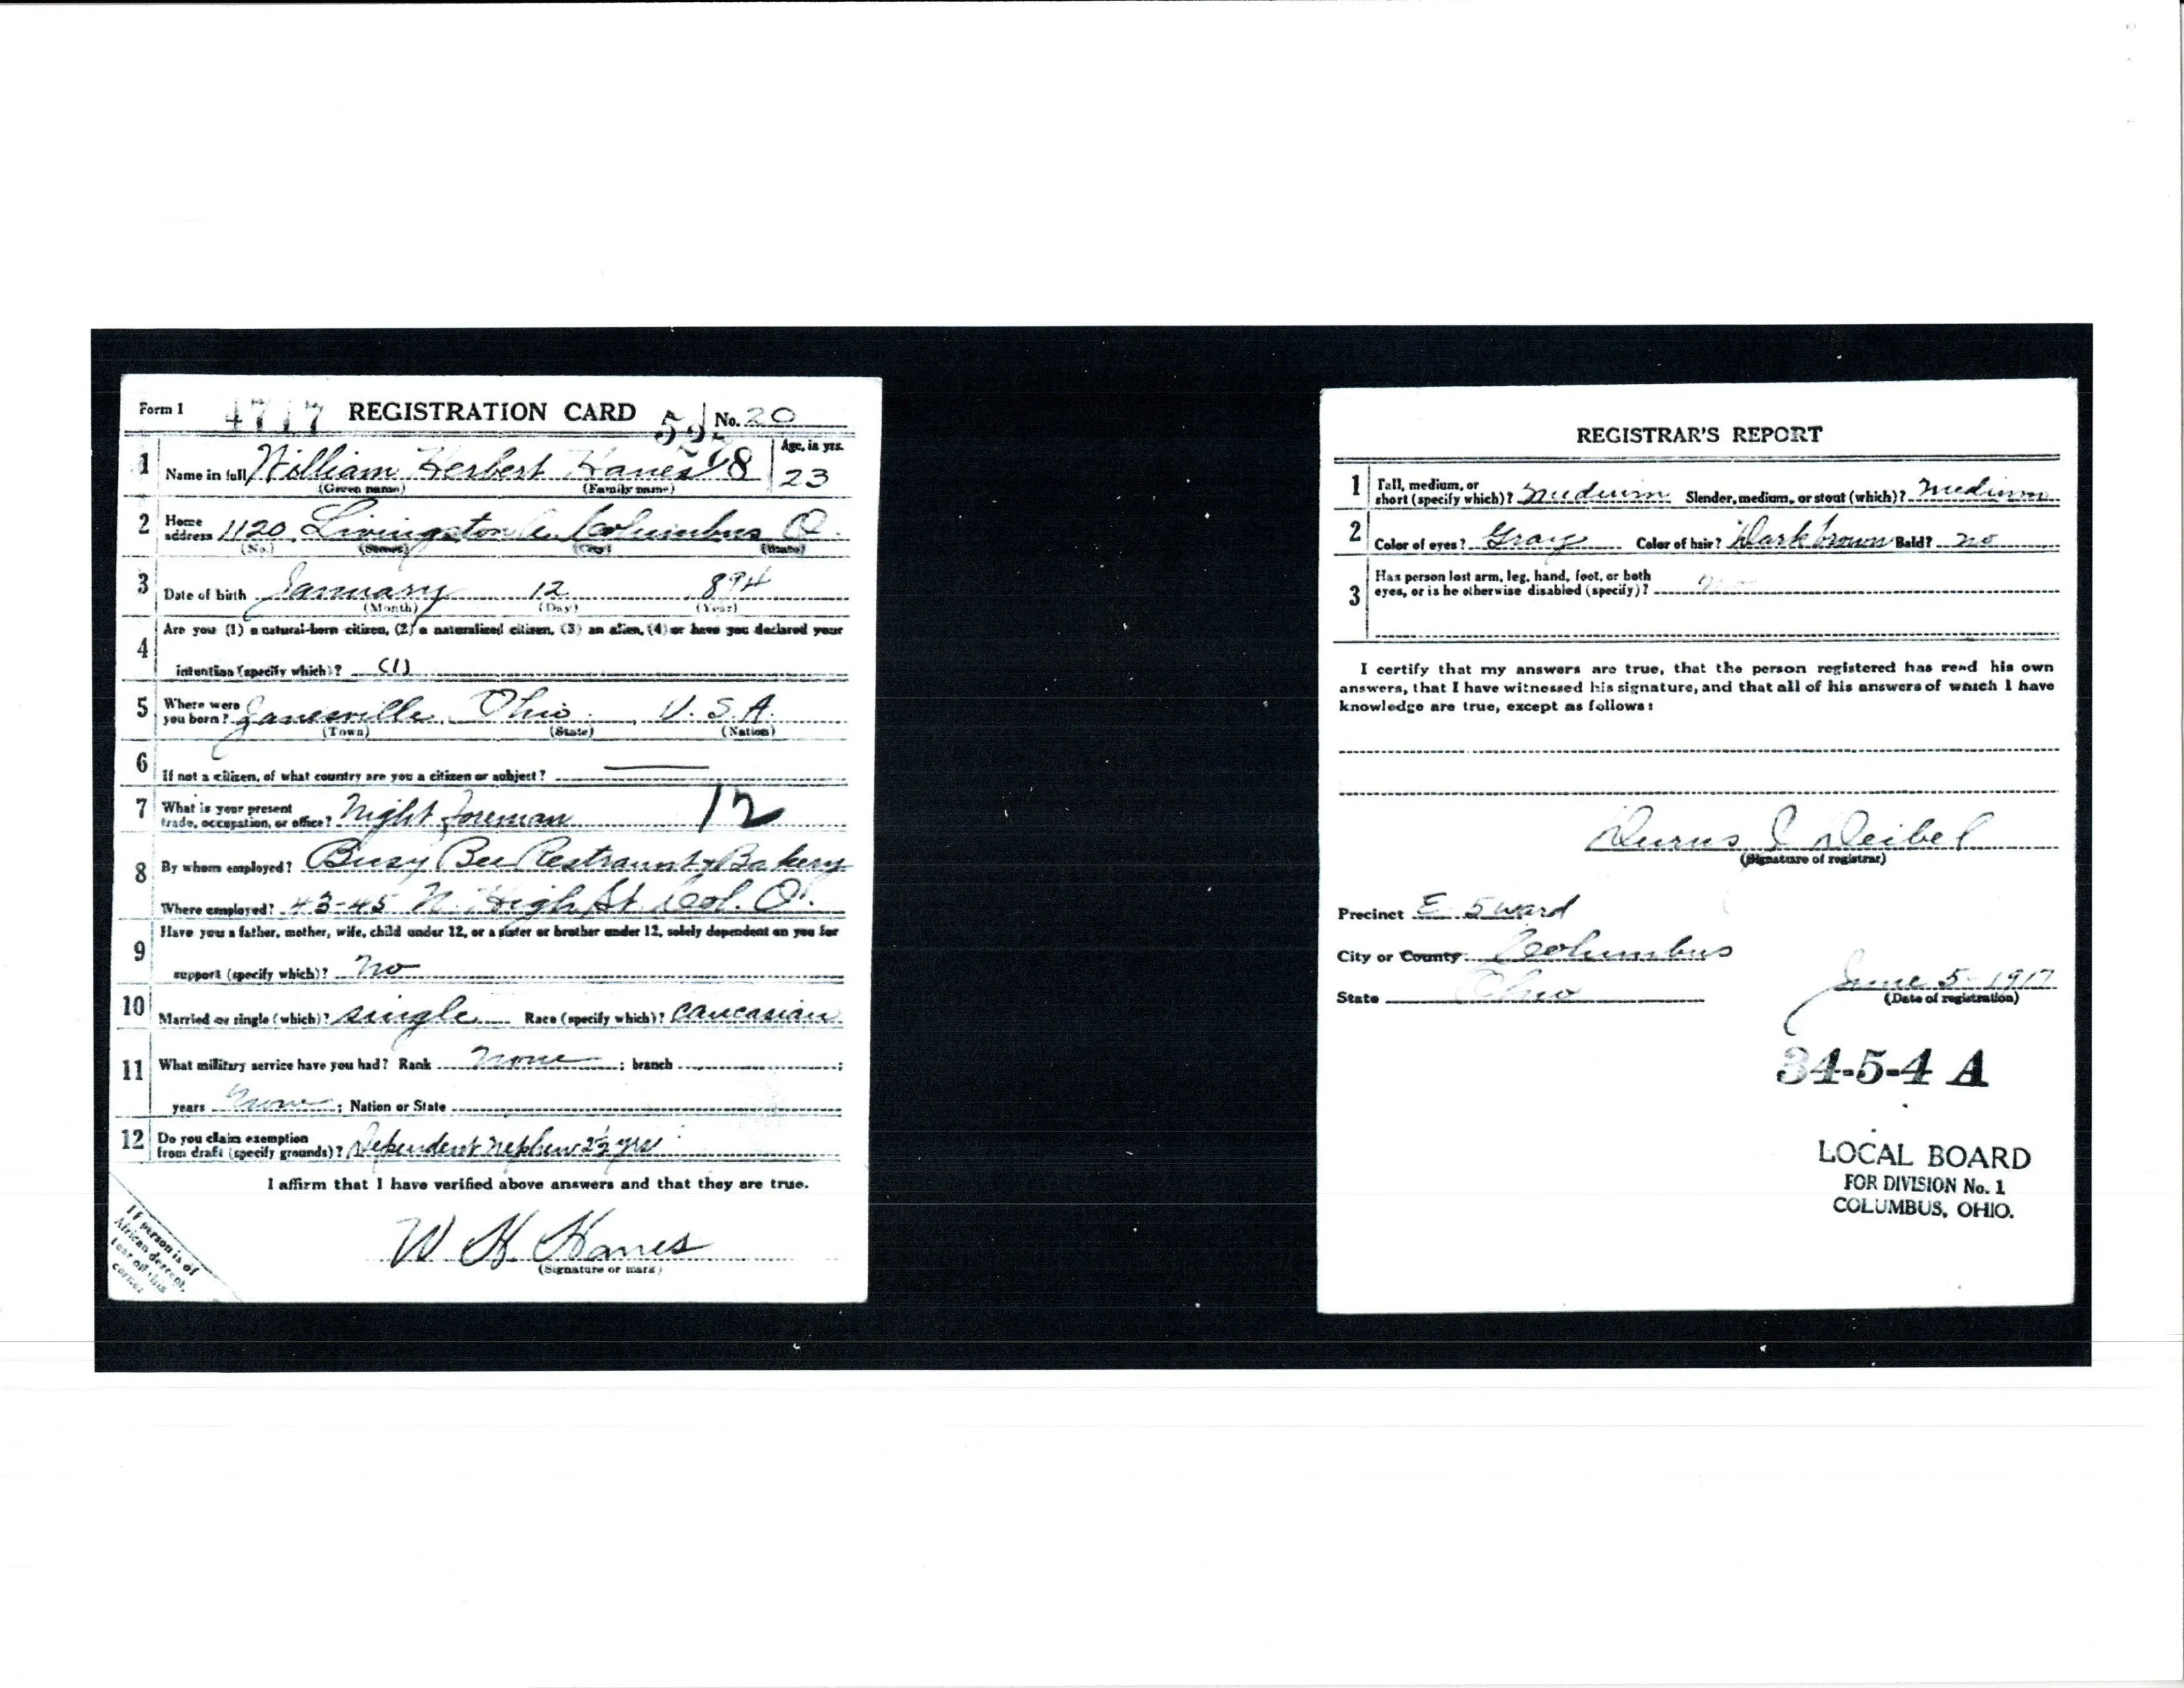 Form 1 4717 REGISTRATION CARD No. 20
1 Name in full William Herbert Hanes 8 Age, in yrs. 23
(Given name) (Family name)
2 Home address 1120 Livingston Columbus O.
(No.) (Street) (City) (State)
3 Date of birth January 12 894
(Month) (Day) (Year)
4 Are you (1) a natural-born citizen, (2) a naturalized citizen, (3) an alien, (4) or have you declared your
intention (specify which)? (1)
5 Where were you born? Zanesville, Ohio U.S.A.
(Town) (State) (Nation)
6 If not a citizen, of what country are you a citizen or subject?
7 What is your present trade, occupation, or office? Night foreman 12
8 By whom employed? Busy Bee Restraunt & Bakery
Where employed? 43-45 N. High St. Col. O.
9 Have you a father, mother, wife, child under 12, or a sister or brother under 12, solely dependent on you for
support (specify which)? No
10 Married or single (which)? single Race (specify which)? Caucasian
11 What military service have you had? Rank None ; branch ;
years None ; Nation or State
12 Do you claim exemption from draft (specify grounds)? Dependent nephew 2½ yrs
I affirm that I have verified above answers and that they are true.
W H Hanes
(Signature or mark)
If person is of
African descent,
tear off this
corner
REGISTRAR'S REPORT
1 Tall, medium, or short (specify which)? Medium Slender, medium, or stout (which)? Medium
2 Color of eyes? Gray Color of hair? Dark brown Bald? no
3 Has person lost arm, leg, hand, foot, or both
eyes, or is he otherwise disabled (specify)? no
I certify that my answers are true, that the person registered has read his own
answers, that I have witnessed his signature, and that all of his answers of which I have
knowledge are true, except as follows:
Deibel
(Signature of registrar)
Precinct E 5 ward
City or County Columbus
State Ohio June 5-1917
(Date of registration)
34-5-4 A
LOCAL BOARD
FOR DIVISION No. 1
COLUMBUS, OHIO.